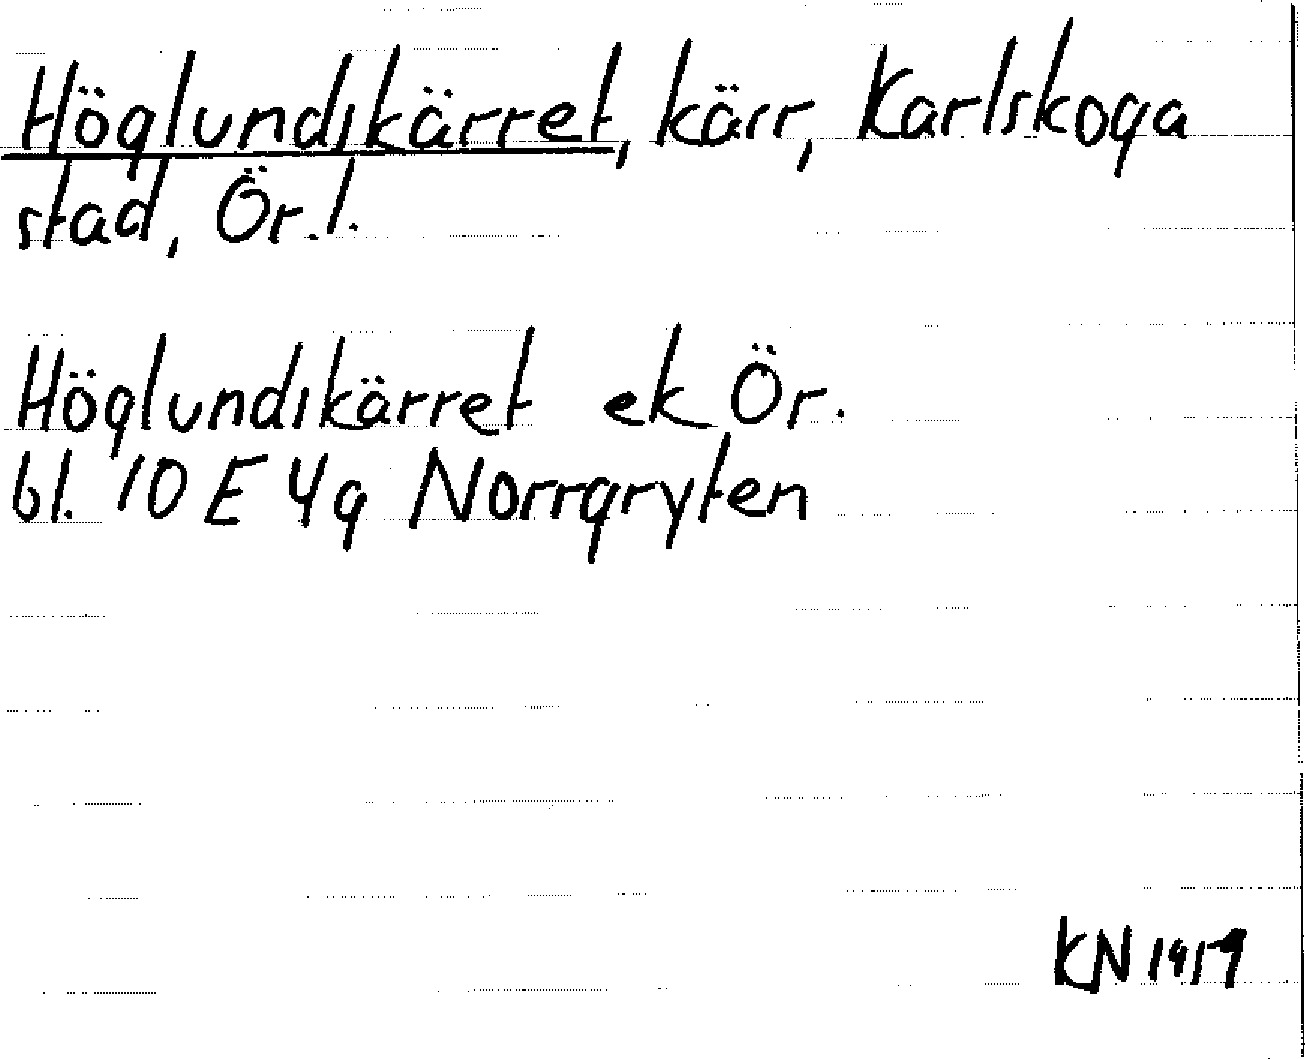 Höglundskärret, kärr, Karlskoga
stad, Ör.l.
Höglundskärret ek Ör.
bl. 10 E 4g Norrgryten
KN 1959